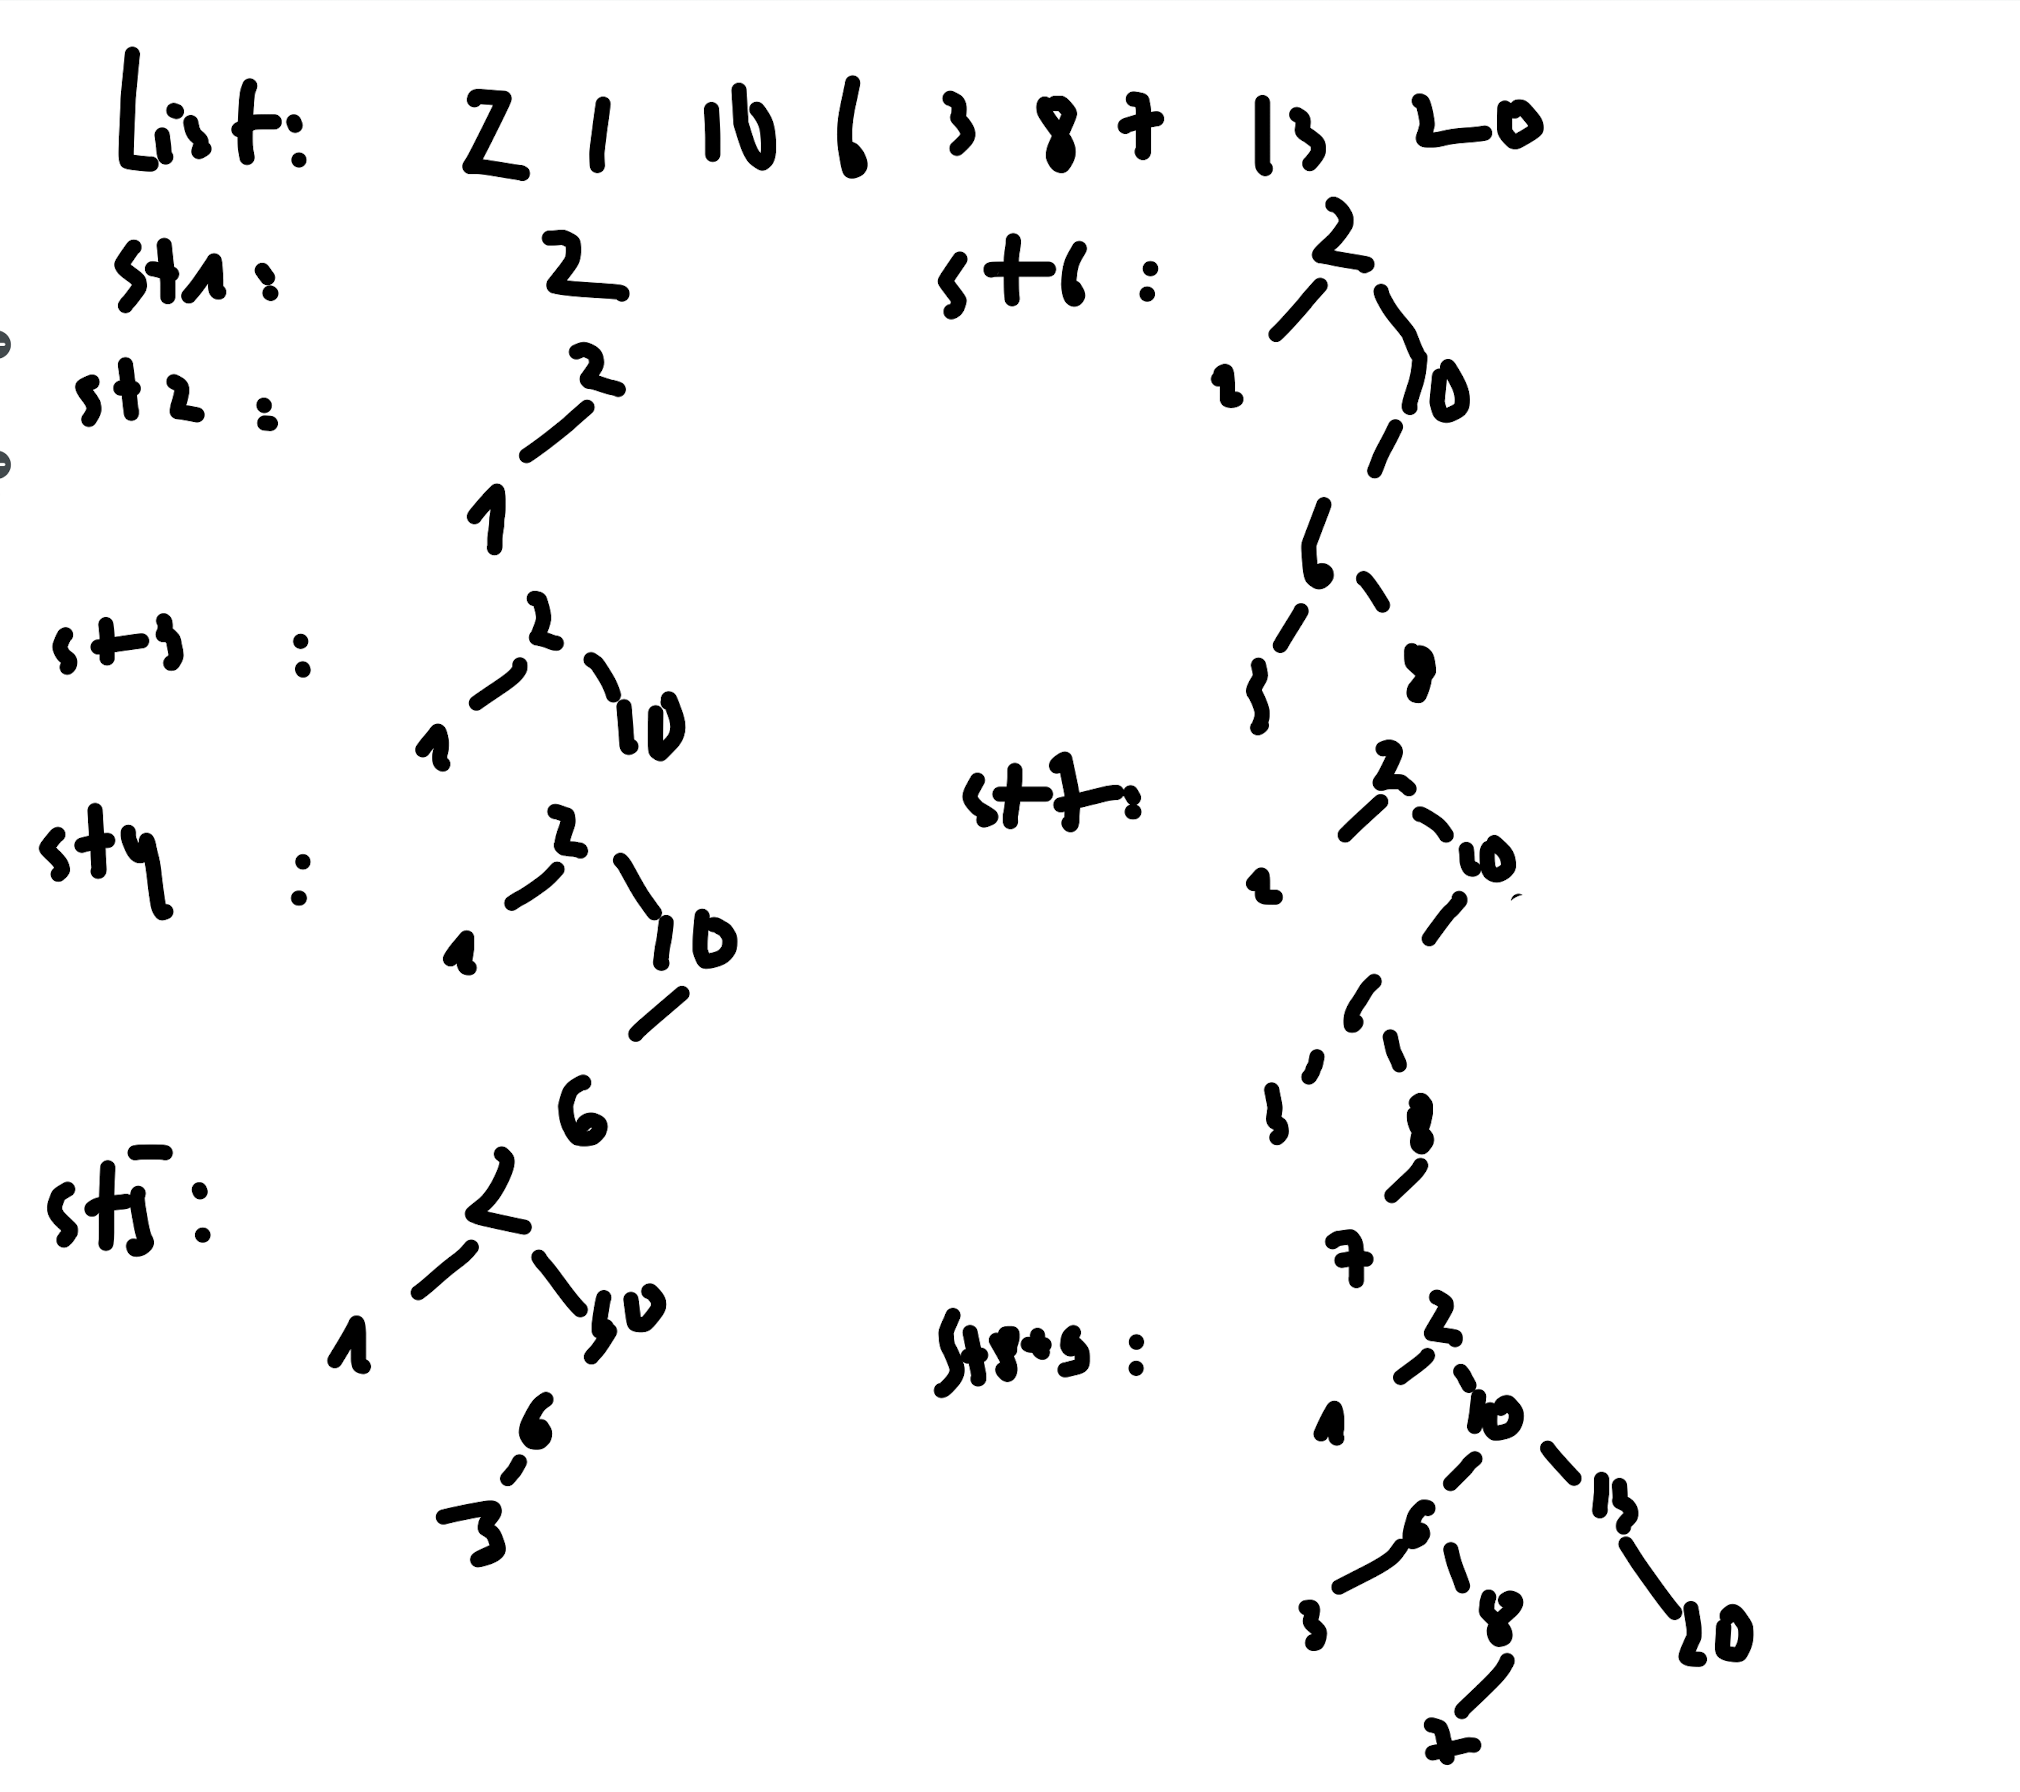 List: 2 1 10 6 3 8 7 13 20
st1:
2
st2:
2
1
st3:
2
1 10
st4:
2
1 10
6
st5:
2
1 10
6
3
st6:
2
1 10
6
3 8
st7:
2
1 10
6
3 8
7
st8+9:
2
1 10
6 13
3 8 20
7